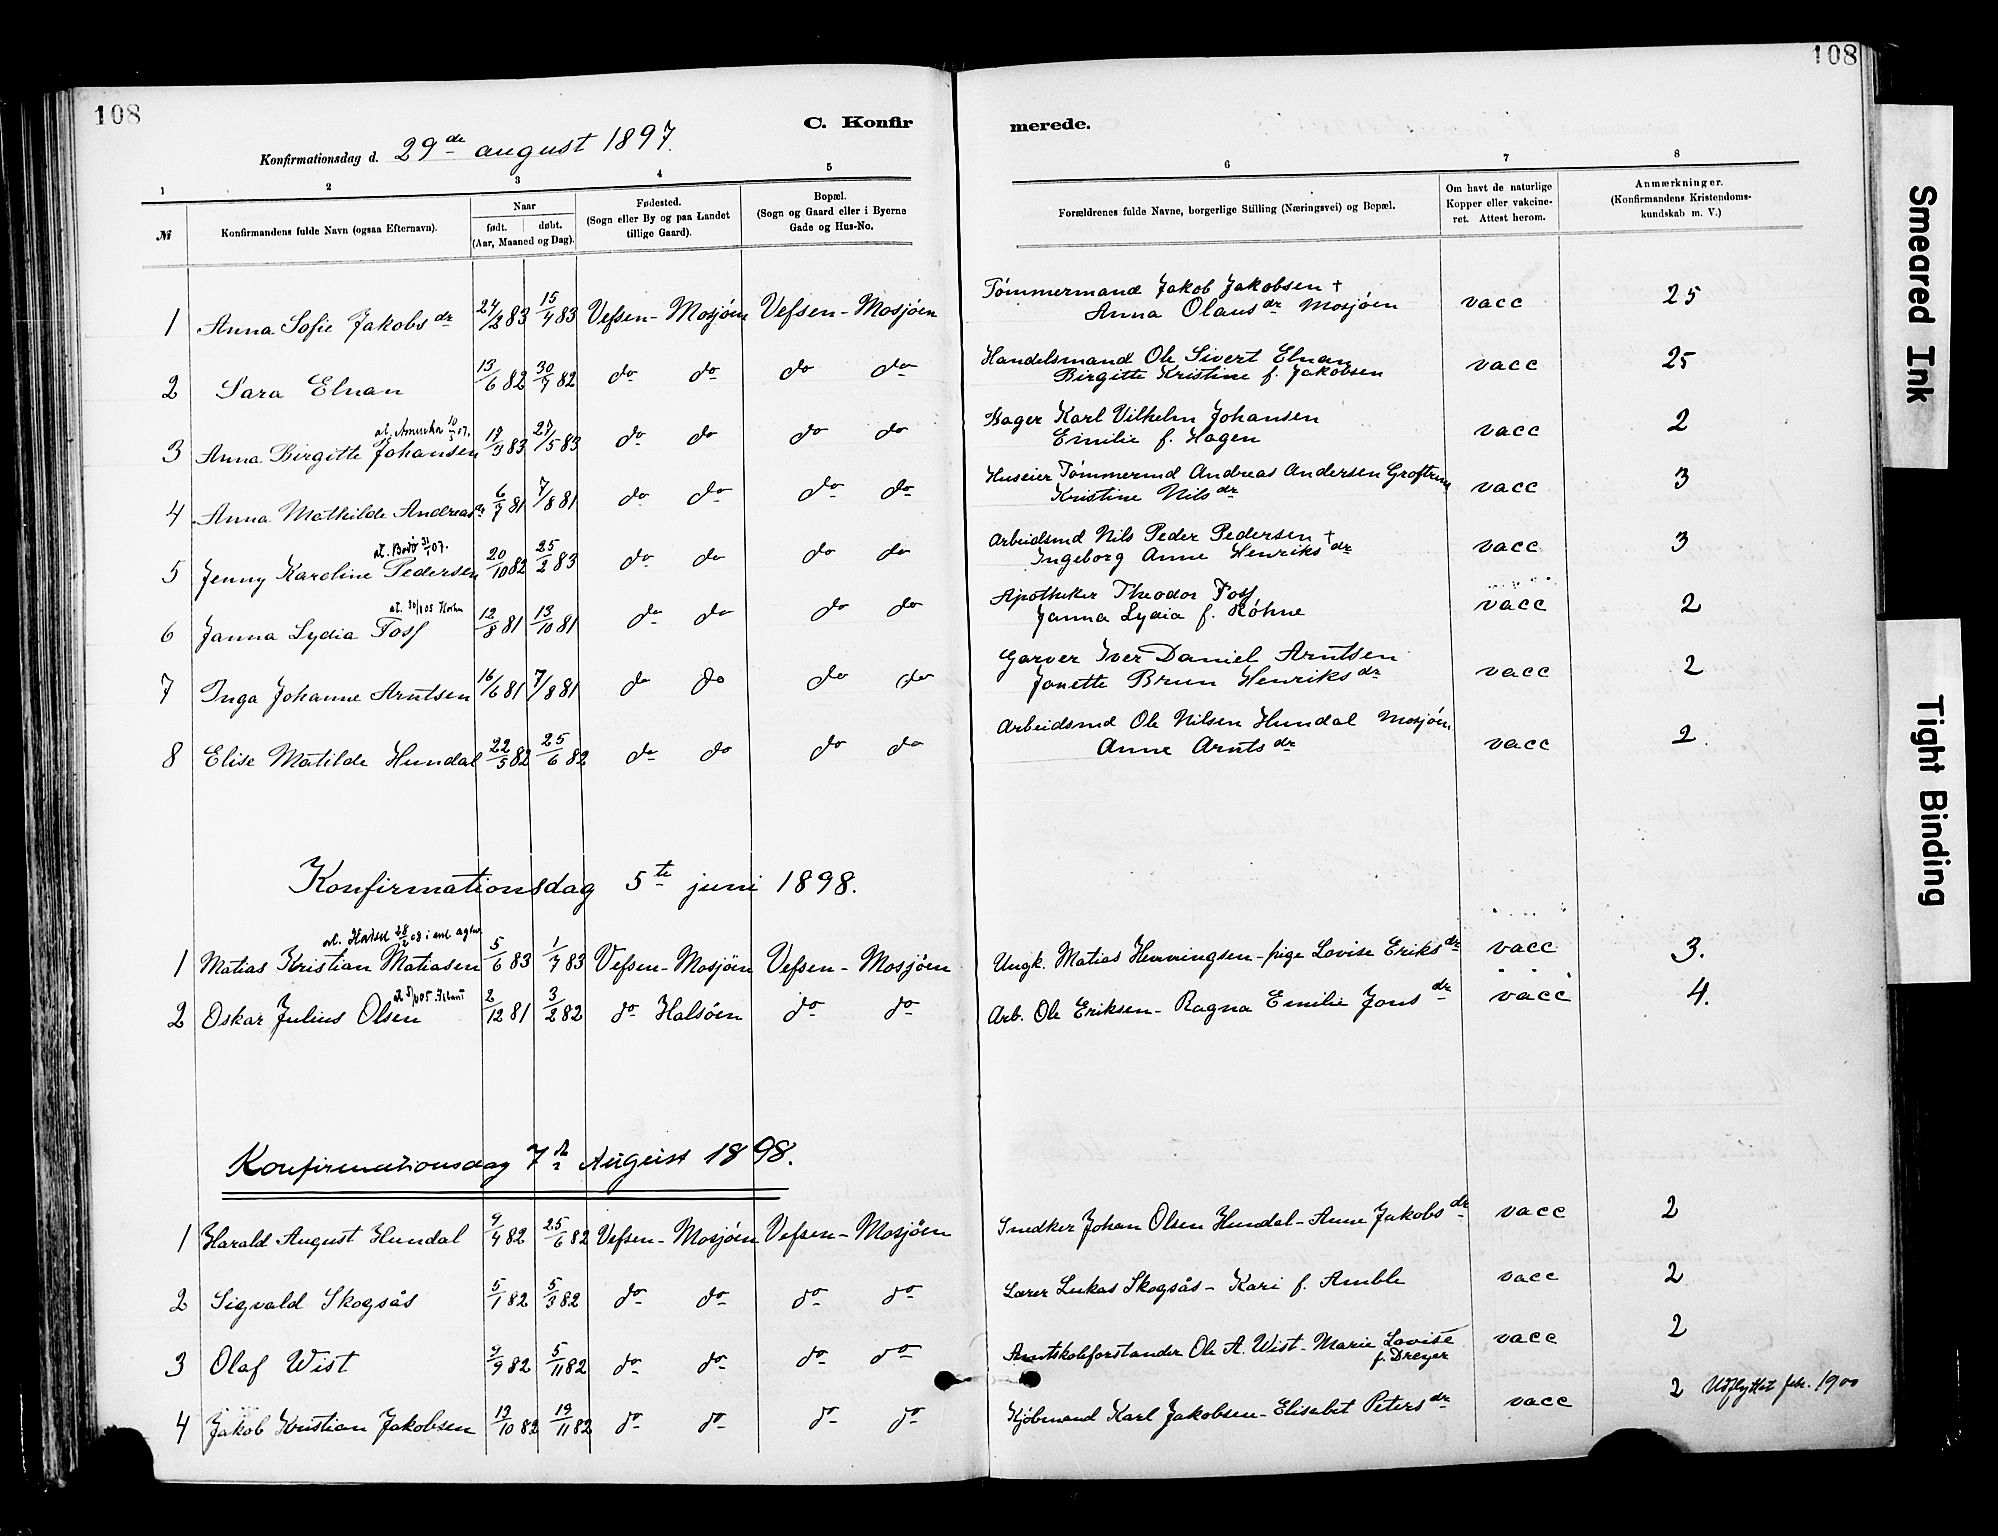 108
108
C. Konfirmerede.
Konfirmationsdag d. 29de august 1897.
1 2 3 4 5 6 7 8
№ Konfirmandens fulde Navn (ogsaa Efternavn). Naar født. døbt. (Aar, Maaned og Dag). Fødested. (Sogn eller By og paa Landet tillige Gaard). Bopæl. (Sogn og Gaard eller i Byerne Gade og Hus-No. Forældrenes fulde Navne, borgerlige Stilling (Næringsvei) og Bopæl. Om havt de naturlige Kopper eller vakcineret. Attest herom. Anmærkninger. (Konfirmandens Kristendomskundskab m. V.)
1 Anna Sofie Jakobsdr 24/2 83 15/4 83 Vefsen - Mosjöen Vefsen - Mosjöen Tømmermand Jakob Jakobsen +
Anna Olausdr Mosjöen vacc 25
2 Sara Elnan 13/6 82 30/7 82 do do do do Handelsmand Ole Sivert Elnan
Birgitte Kristine f. Jakobsen vacc 25
at. Amerika 10/5 07.
3 Anna Birgitte Johansen 18/3 83 27/5 83 do do do do Bager Karl Vilhelm Johansen
Emilie f. Hagen vacc 2
4 Anna Mathilde Andreasdr 6/7 81 7/8 81 do do do do Huseier Tømmermd Andreas Andersen
Kristine Nilsdr vacc 3
at. Bodø 31/1 07.
5 Jenny Karoline Pedersen 20/10 82 25/2 83 do do do do Arbeidsmd Nils Peder Pedersen +
Ingeborg Anne Henriksdr vacc 3
at. 30/1 05
6 Janna Lydia Foss 12/8 81 13/10 81 do do do do Apotheker Theodor Foss
Janna Lydia f. Røhne vacc 2
7 Inga Johanne Arntsen 16/6 81 7/8 81 do do do do Garver Iver Daniel Arntsen
Jonette Brun Henriksdr vacc 2
8 Elise Matilde Hundal 22/5 82 25/6 82 do do do do Arbeidsmd Ole Nilsen Hundal Mosjöen
Anne Arntsdr vacc 2.
Konfirmationsdag 5te juni 1898.
at. Hadsel 28/2 08 i
1 Matias Kristian Matiasen 5/6 83 1/7 83 Vefsen - Mosjöen Vefsen - Mosjöen Ungk. Matias Henningsen - pige Lovise Eriksdr vacc 3.
2 Oskar Julius Olsen 2/12 81 3/2 82 do Halsöen do do Arb. Ole Eriksen - Ragna Emilie Jonsdr vacc 4.
Konfirmationsdag 7de August 1898.
1 Harald August Hundal 9/4 82 25/6 82 Vefsen - Mosjöen Vefsen - Mosjöen Snedker Johan Olsen Hundal - Anne Jakobsdr vacc 2
2 Sigvald Skogsås 5/1 82 5/3 82 do do do do Lærer Lukas Skogsås - Kari f. Amble vacc 2
3 Olaf Wist 9/9 82 5/11 82 do do do do Amtskoleforstander Ole A. Wist - Marie Lovise
f. Dreyer vacc 2
4 Jakob Kristian Jakobsen 13/10 82 19/11 82 do do do do Kjöbmand Karl Jakobsen - Elisabet Petersdr vacc 2 Udflyttet febr. 1900
Smeared Ink
Tight Binding